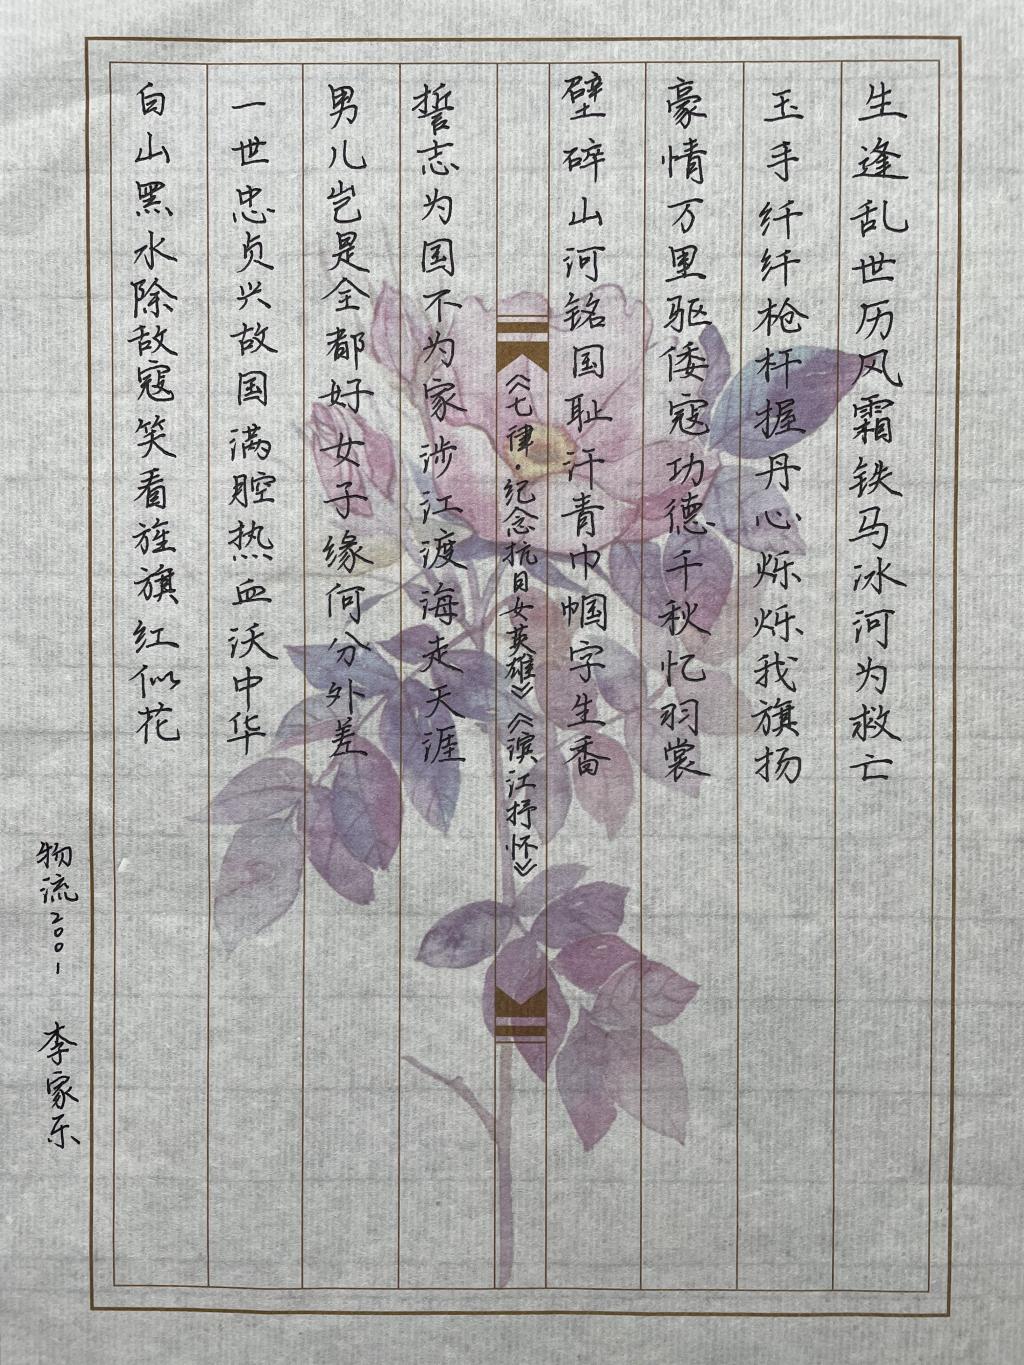 生逢乱世历风霜铁马冰河为救亡
玉手纤纤枪杆握丹心烁烁我旗扬
豪情万里驱倭寇功德千秋忆羽裳
壁碎山河铭国耻汗青巾帼字生香
《七律·纪念抗日女英雄》《滨江抒怀》
誓志为国不为家涉江渡海走天涯
男儿岂是全都好女子缘何分外差
一世忠贞兴故国满腔热血沃中华
白山黑水除敌寇笑看旌旗红似花
物流2001 李家乐